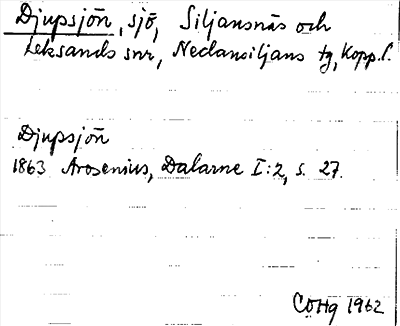 Djupsjön, sjö, Siljansnäs och
Leksands snr, Nedansiljans tg, Kopp. l.
Djupsjön
1863 Arosenius, Dalarne I:2, s. 27.
COHg 1962